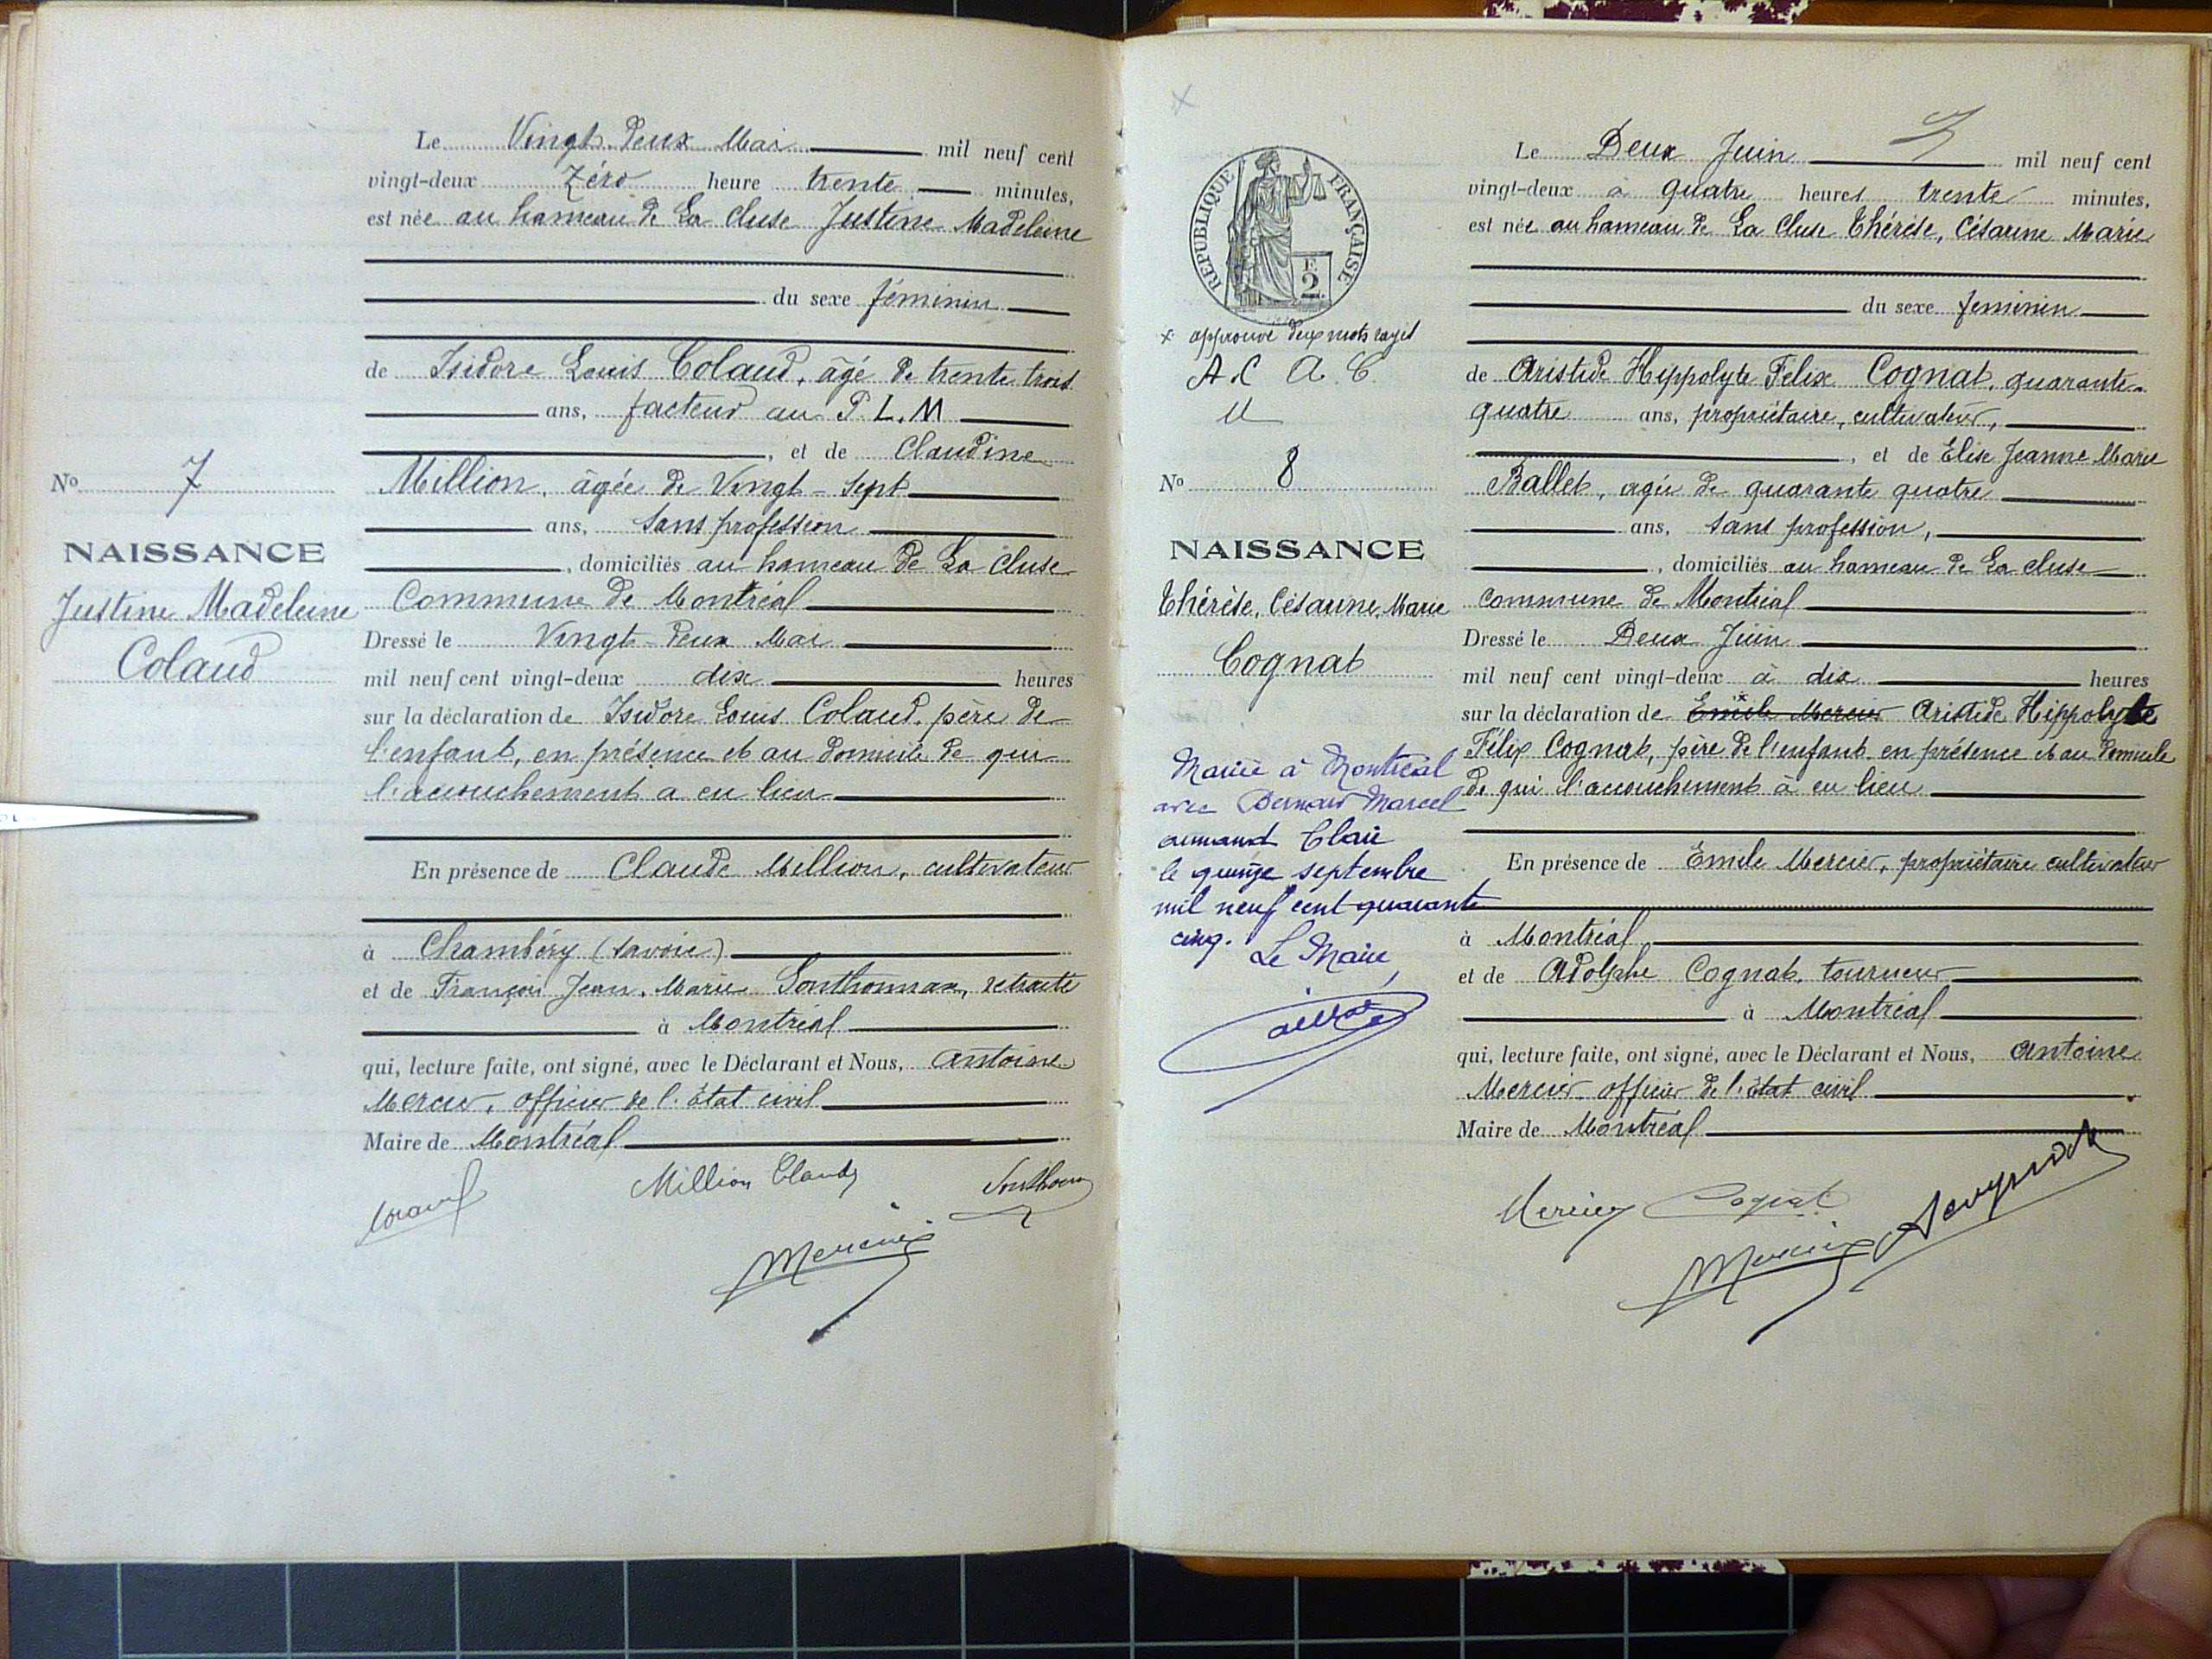 Le Vingt-Deux Mai mil neuf cent
vingt-deux Zéro heure trente minutes,
est née au hameau de La Cluse Justine Madeleine
du sexe féminin
de Isidore Louis Colaud, âgé de trente trois
ans, facteur au P.L.M
, et de Claudine
Million, âgée de Vingt-Sept
ans, sans profession
, domiciliés au hameau de La Cluse
Commune de Montréal
Dressé le Vingt-Deux Mai
mil neuf cent vingt-deux dix heures
sur la déclaration de Isidore Louis Colaud, père de
l'enfant, en présence et au domicile de qui
l'accouchement a eu lieu
En présence de Claude Million, cultivateur
à Chambéry (Savoie)
et de François Jean-Marie Sonthonnax, retraité
à Montréal
qui, lecture faite, ont signé, avec le Déclarant et Nous, Antoine
Mercier, officier de l'état civil
Maire de Montréal
Million Claude
Mercier
No 7
NAISSANCE
Justine Madeleine
Colaud
RÉPUBLIQUE FRANÇAISE
F.
2
x approuvé deux mots rayés
A.C A.C.
M
No 8
NAISSANCE
Thérèse, Césarine, Marie
Cognat
Mariée à Montréal
avec Bernard Marcel
Armand Clair
le quinze septembre
mil neuf cent quarante
cinq.
Le Maire,
Le Deux Juin mil neuf cent
vingt-deux à quatre heures trente minutes,
est née au hameau de La Cluse Thérèse, Césarine Marie
du sexe féminin
de Aristide Hippolyte Félix Cognat, quarante-
quatre ans, propriétaire, cultivateur,
, et de Elise Jeanne Marie
Ballet, âgée de quarante quatre
ans, sans profession,
, domiciliés au hameau de La cluse
commune de Montréal
Dressé le Deux Juin
mil neuf cent vingt-deux à dix heures
sur la déclaration de Emile Mercier Aristide Hippolyte
Félix Cognat, père de l'enfant en présence et au domicile
de qui l'accouchement à eu lieu
En présence de Emile Mercier, propriétaire cultivateur
à Montréal
et de Adolphe Cognat, tourneur
à Montréal
qui, lecture faite, ont signé, avec le Déclarant et Nous, Antoine
Mercier officier de l'état civil
Maire de Montréal
Mercier Cognat
Mercier